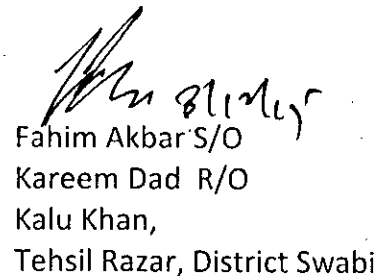 Fahim Akbar S/O
Kareem Dad R/O
Kalu Khan,
Tehsil Razar, District Swabi